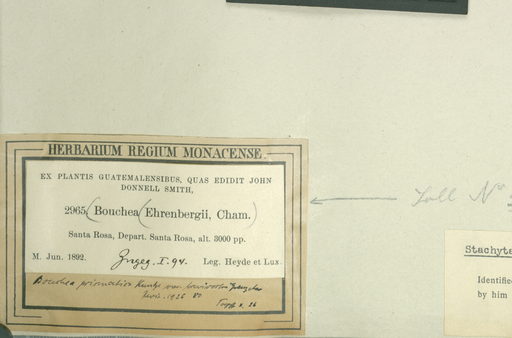 HERBARIUM REGIUM MONACENSE.
EX PLANTIS GUATEMALENSIBUS, QUAS EDIDIT JOHN
DONNELL SMITH,
2965, (Bouchea (Ehrenbergii, Cham.)
Santa Rosa, Depart. Santa Rosa, alt. 3000 pp.
M. Jun. 1892. Leg. Heyde et Lux.
Bouchea prismatica Kuntze var.
1926
Coll Nº
Stachyta
Identifie
by him